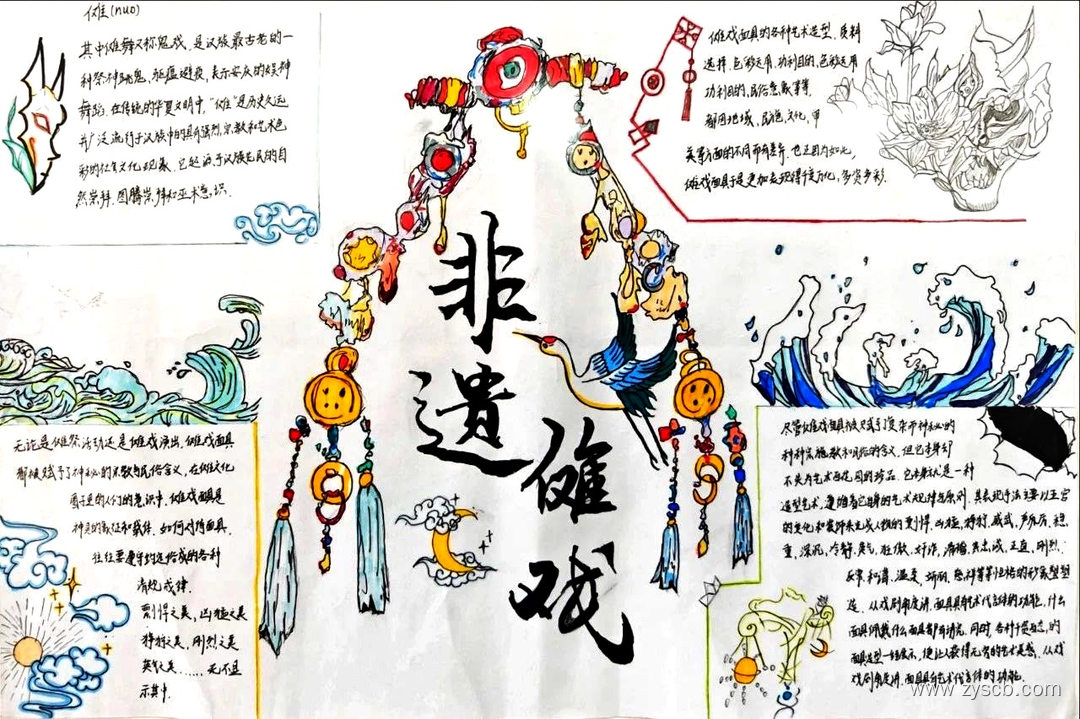 傩(nuo)
其中傩舞又称鬼戏，是汉族最古老的一
种祭神跳鬼、驱瘟避疫、表示安庆的娱神
舞蹈。在传统的华夏文明中，“傩”是历史久远
并广泛流行于汉族中的具有强烈宗教和艺术色
彩的社会文化现象，它起源于汉族先民的自
然崇拜、图腾崇拜和巫术意识.
傩戏面具的各种艺术造型、质料
选择、色彩运用、功利目的、色彩运用
功利目的、民俗意象等等
都因地域、民族、文化、审
美等方面的不同而有差异.也正因为如此，
傩戏面具于是更加表现得千变万化，多姿多彩.
非遗
傩戏
无论是傩祭活动还是傩戏演出，傩戏面具
都被赋予了神秘的宗教与民俗含义，在傩文化
圈子里的人们的意识中，傩戏面具是
神灵的象征和载体，如何对待面具，
往往要遵守约定俗成的各种
清规戒律.
剽悍之美、凶猛之美
狰狞之美、刚烈之美
英气之美……无不显
示其中.
尽管傩戏面具被赋予了复杂而神秘的
种种宗教和民俗的含义，但它本身却
不失为艺术百花园的珍品，它本身就是一种
造型艺术，遵循着它自身的艺术规律与原则，其表现手法主要以五官
的变化和装饰来完成人物的彪悍、凶猛、狰狞、威武、严厉、稳
重、深沉、冷静、英气、狂傲、奸诈、滑稽、忠诚、正直、刚烈、
反常、和蔼、温柔、妍丽、慈祥等等性格的形象塑造
造.从戏剧角度讲，面具具有艺术代言体的功能，什么
面具佩戴什么面具都有讲究.同时，各种千姿百态的
面具造型一经展示，便让人获得无穷的艺术美感，从戏
戏剧角度讲，面具具有艺术代言体的功能.
www.zyscb.com